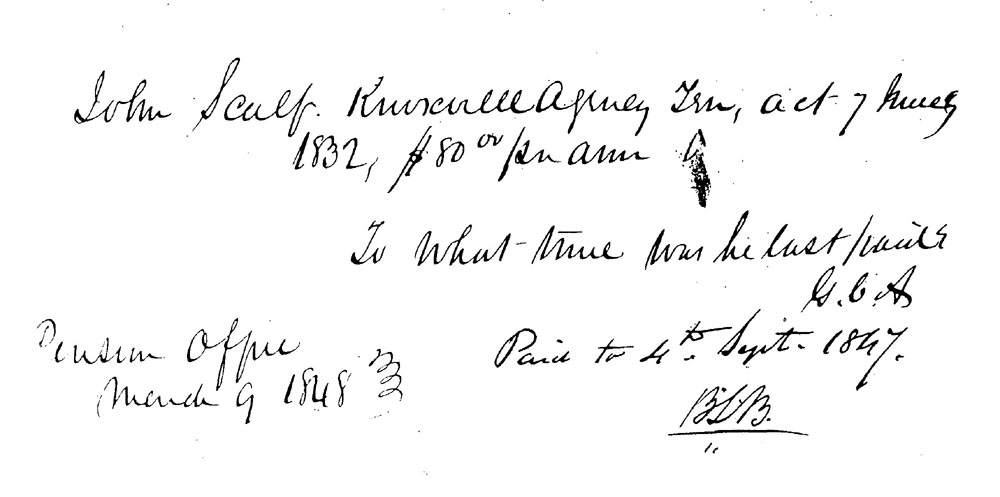 John Scalf. Knoxville Agency Ten, act 7 June
1832, $80 00 per ann
To what time was he last paid?
G. C. A
Pension Office
March 9 1848
Paid to 4th. Sept. 1847.
B.L.B.